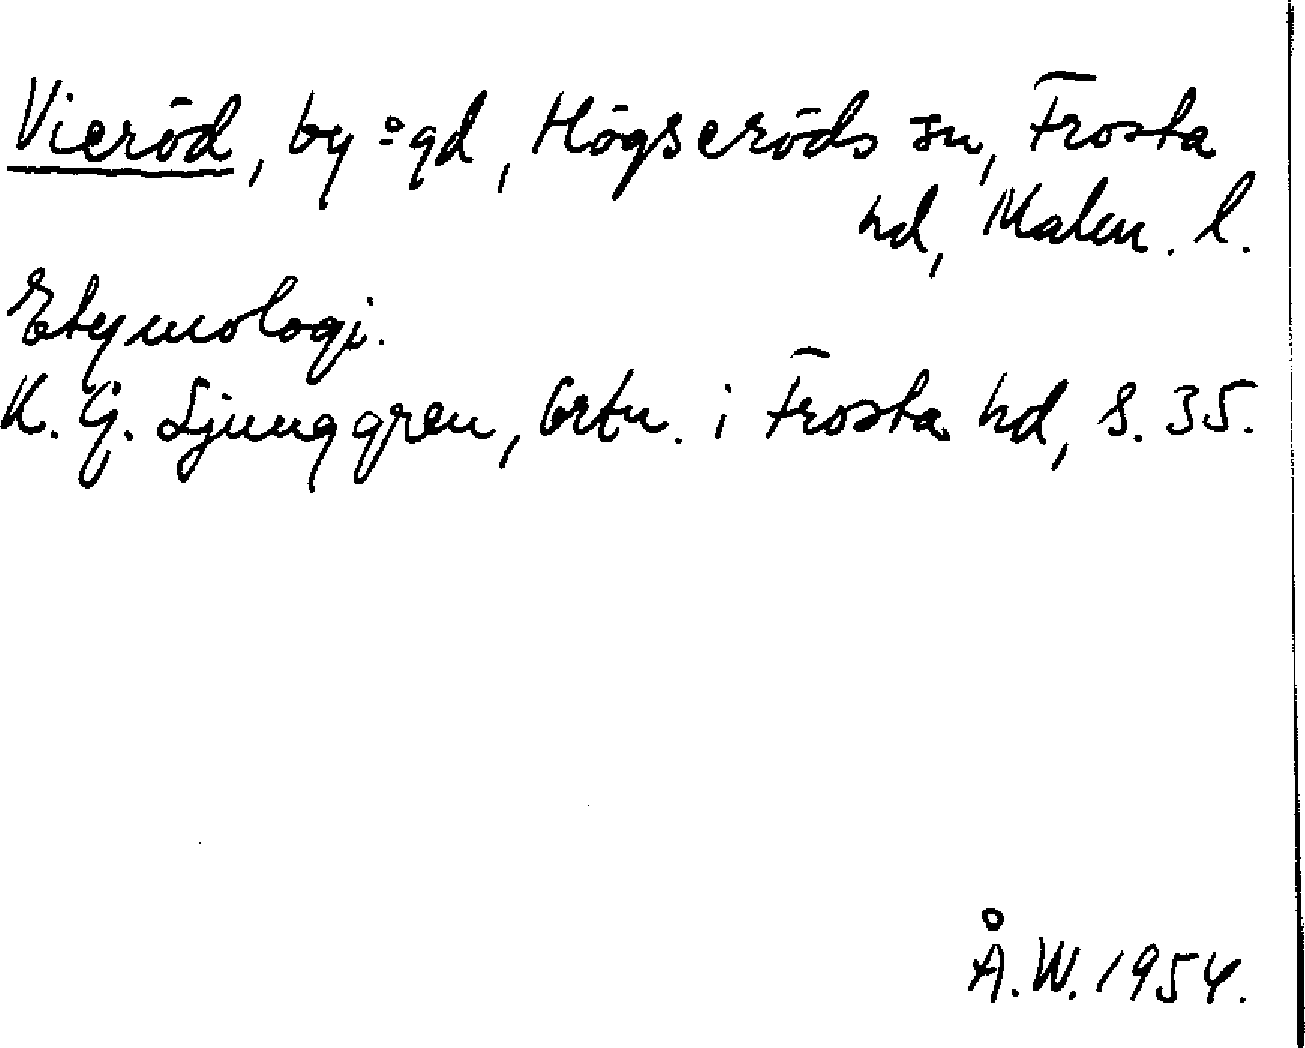 Vieröd, by o gd, Högseröds sn, Frosta
hd, Malm. l.
Etymologi.
K. G. Ljunggren, Ortn. i Frosta hd, S. 35.
Å.W. 1954.